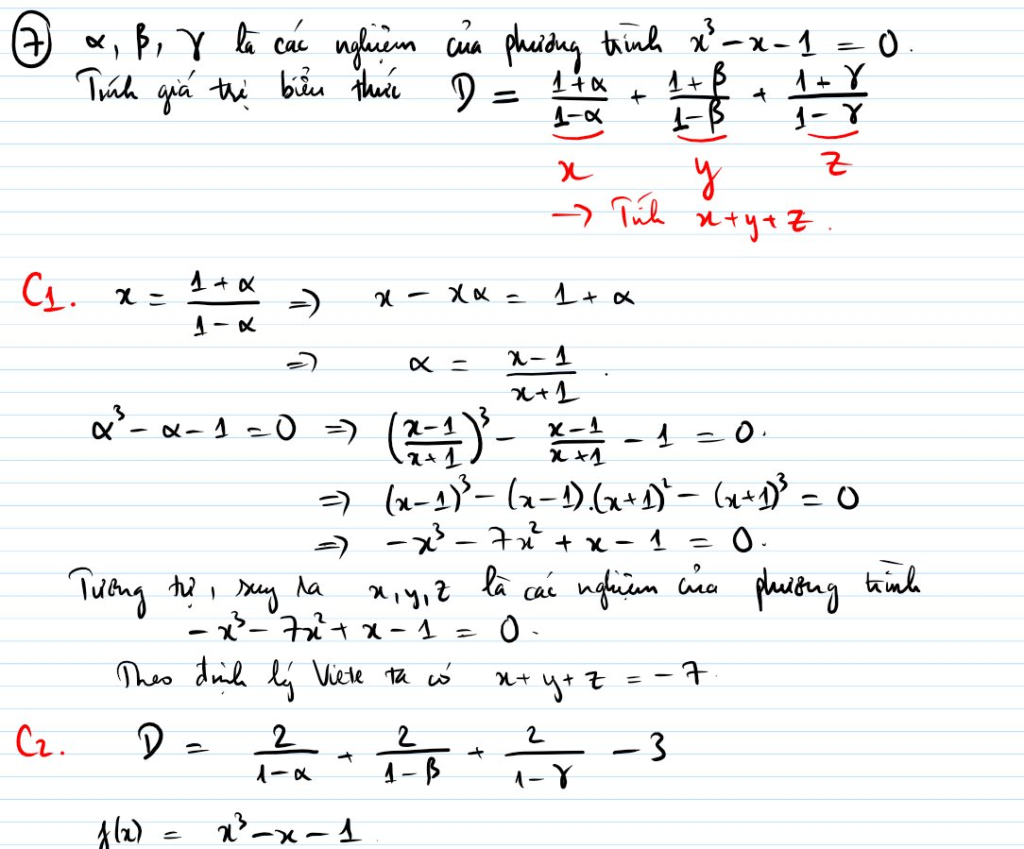 ⑦ α, β, γ là các nghiệm của phương trình x³ − x − 1 = 0.
Tính giá trị biểu thức D = (1+α)/(1−α) + (1+β)/(1−β) + (1+γ)/(1−γ)
x y z
→ Tính x+y+z.
C1. x = (1+α)/(1−α) ⇒ x − xα = 1 + α
⇒ α = (x−1)/(x+1).
α³ − α − 1 = 0 ⇒ ((x−1)/(x+1))³ − (x−1)/(x+1) − 1 = 0.
⇒ (x−1)³ − (x−1).(x+1)² − (x+1)³ = 0
⇒ −x³ − 7x² + x − 1 = 0.
Tương tự, suy ra x, y, z là các nghiệm của phương trình
−x³ − 7x² + x − 1 = 0.
Theo định lý Viete ta có x+y+z = −7.
C2. D = 2/(1−α) + 2/(1−β) + 2/(1−γ) − 3
f(x) = x³ − x − 1